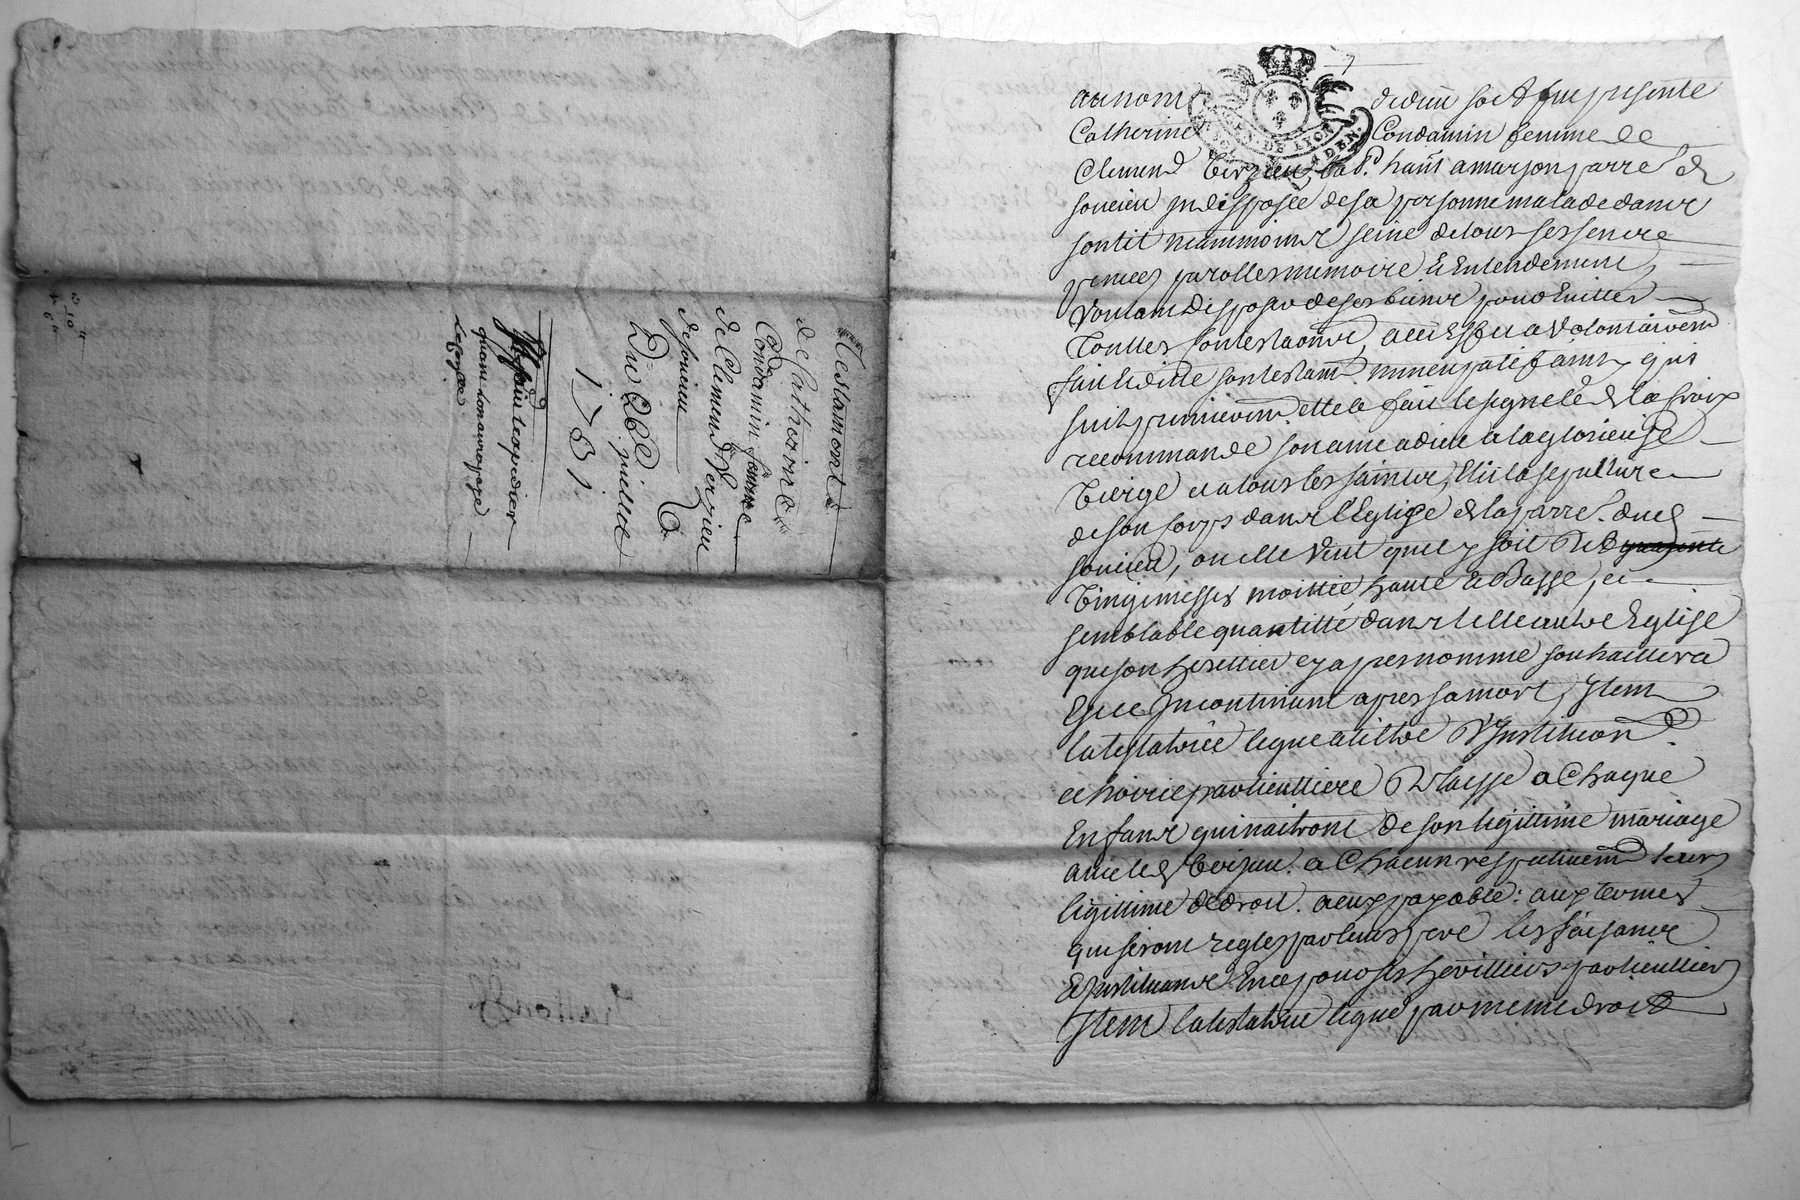 Testament
de Catherine
Condamin femme
de Clement Verzieu
de soucieu
Du 22e juillet
1731
au nom de dieu soit fut presente
Catherine Condamin femme de
Clement Verzieu, lad. hant a marjon parre d
soucieu indisposée de sa personne malade dans
son lit neammoins seine de tous ses sens
pensées parolles memoire & Entendement,
Voulant disposer de ses biens pour Eviter
Touttes contestaons, a cet Effet a volontairemt
fait & dicté son testamt nuncupatif ainsy qui
suit, premieremt elle a fait le signe de la Croix
recommandé son ame a dieu a la glorieuse
Vierge et a tous les saints, Elit la sepulture
de son Corps dans l'Eglise de la parre. dud
soucieu, ou elle veut quil y soit dit quarente
Vingt messes moitié haute & Basse, et
semblable quantitté dans telle autre Eglise
que son herettier cy apres nommé souhaittera
Et ce Incontinent apres sa mort, Item
la testatrice legue a tittre d'Institution
et hoirie particulliere & laisse a Chaque
Enfans qui naitront de son legitime mariage
avec led Verzieu. a Chacun respectivemt leurs
legittime de droit. a eux payable: aux termes
qui seront regles par leur pere les faisant
& Instituant En ce pour ses herittiers particulliers
Item la testatrice legue par meme droit